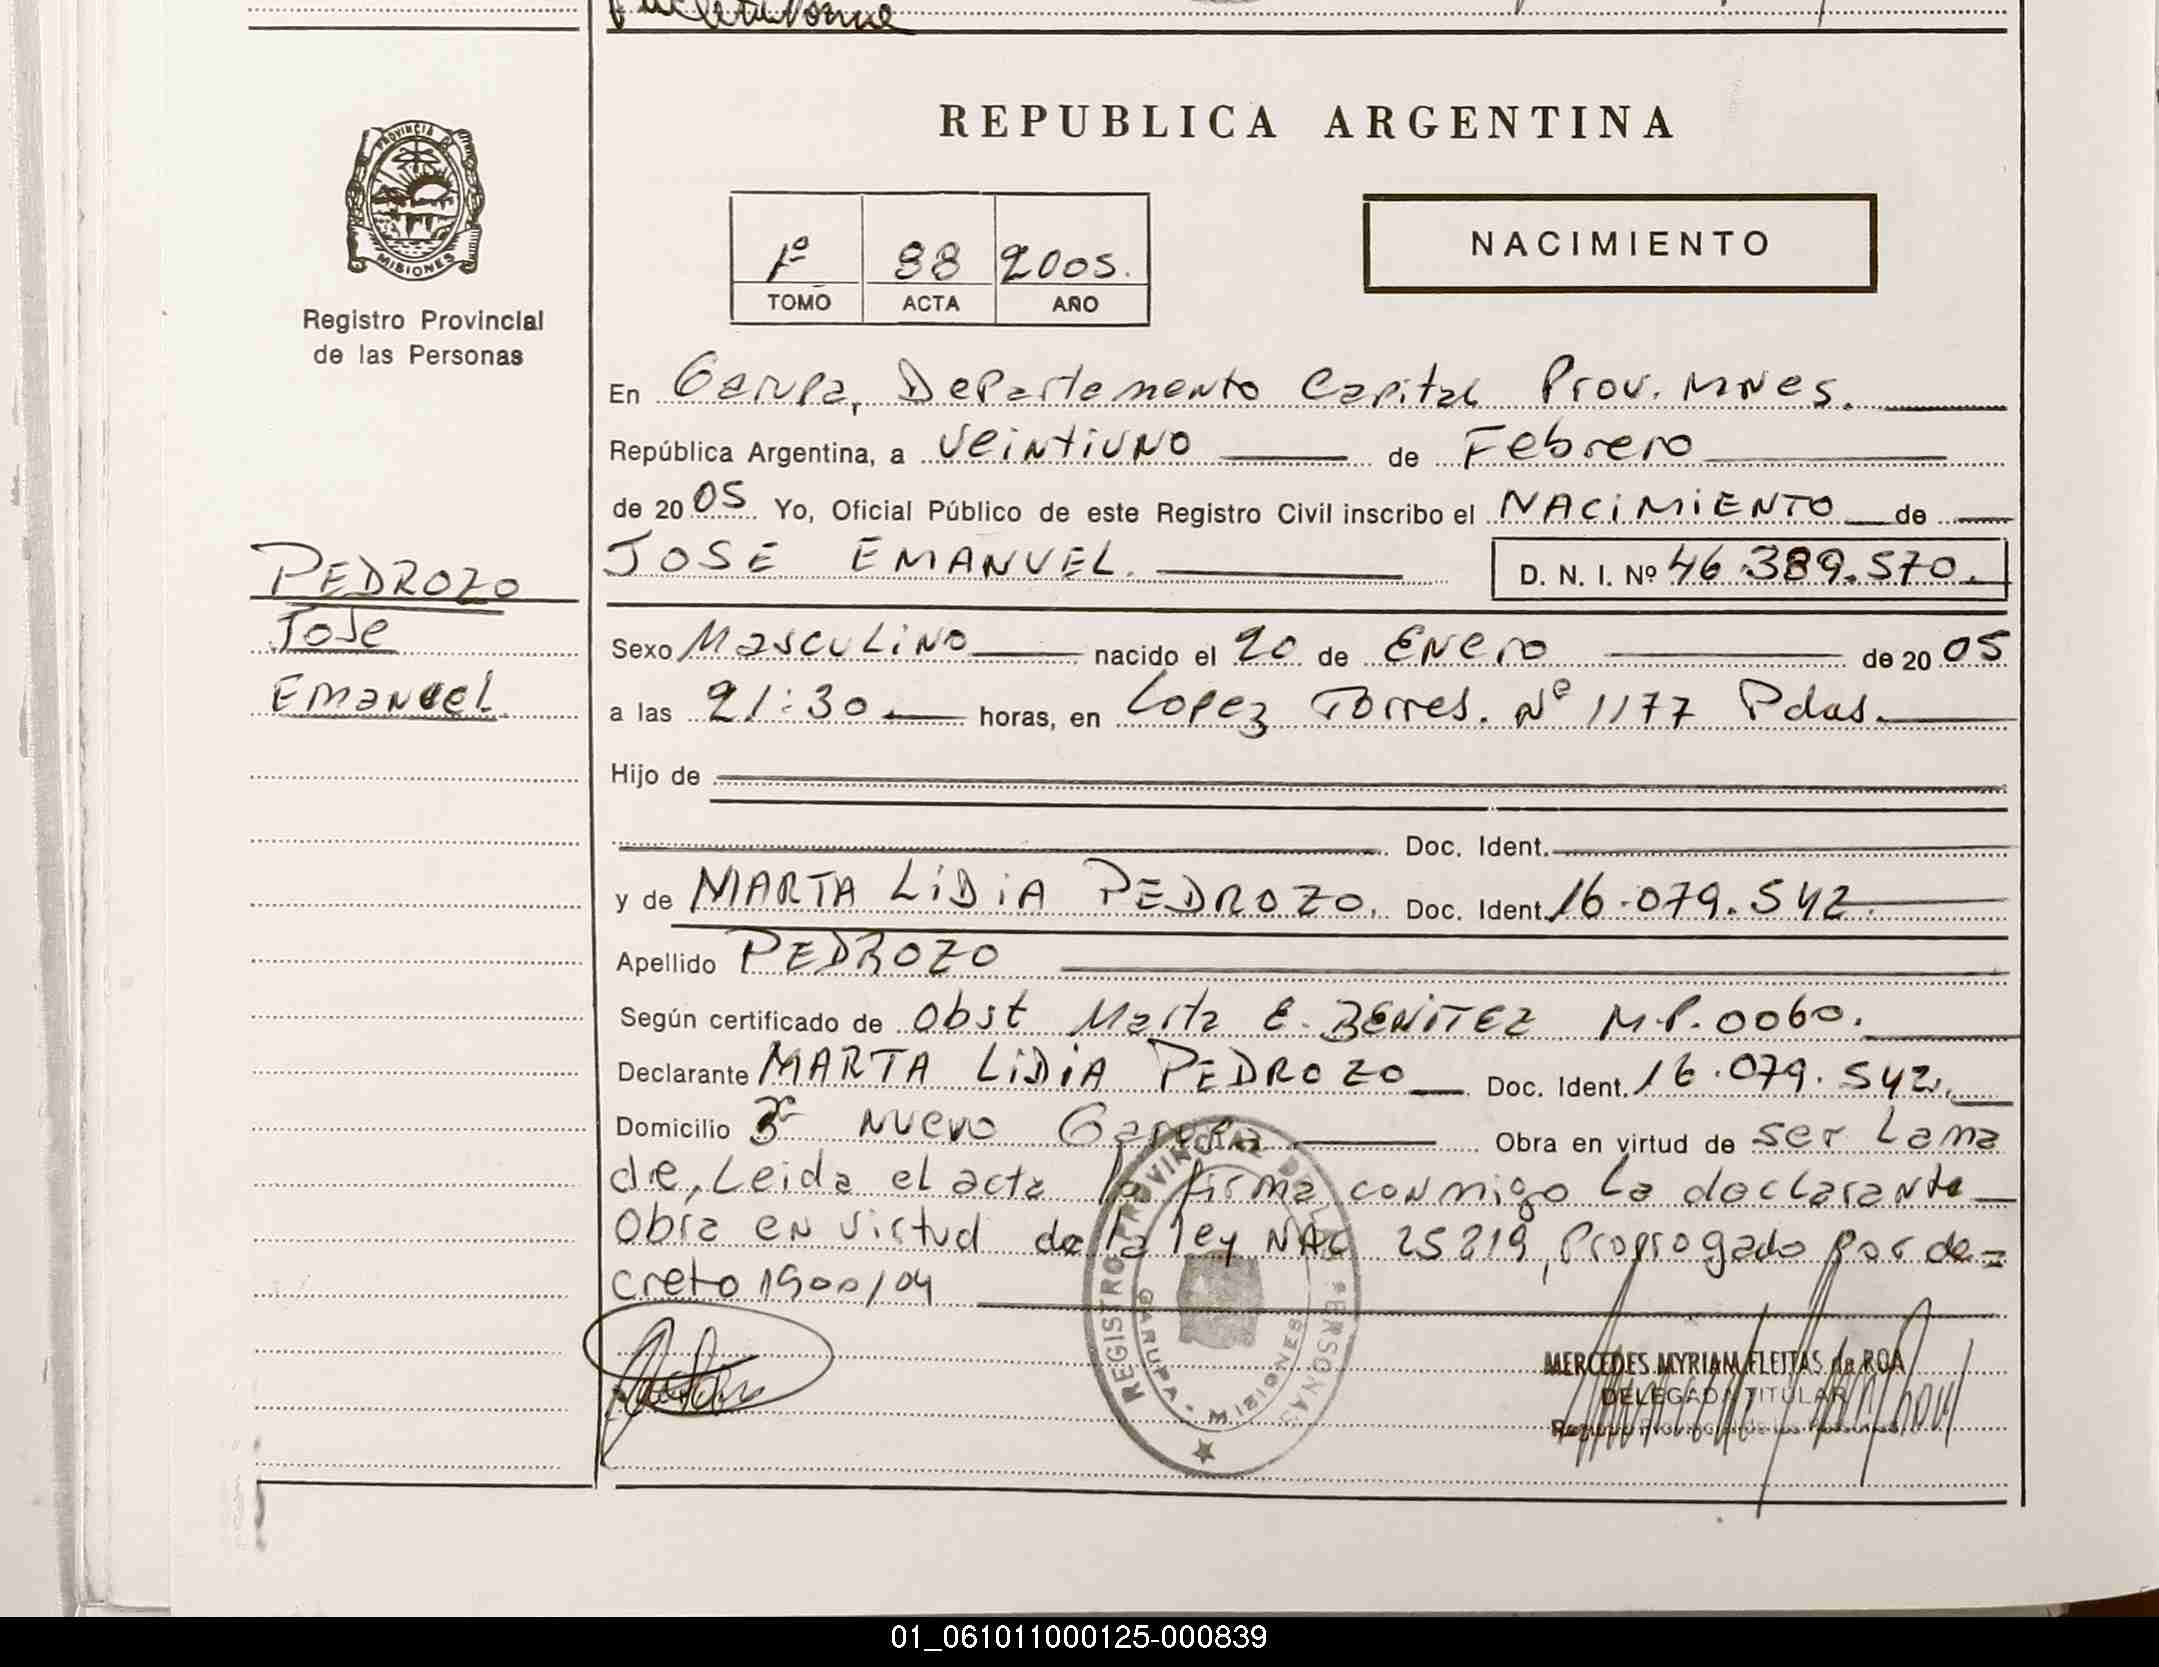 REPUBLICA ARGENTINA
PROVINCIA DE
MISIONES
Registro Provincial
de las Personas
1º 88 2005.
TOMO ACTA AÑO
NACIMIENTO
En Garupa, Departamento Capital Prov. MNes.
República Argentina, a Veintiuno de Febrero
de 2005 Yo, Oficial Público de este Registro Civil inscribo el NACIMIENTO de
PEDROZO
Jose
Emanuel
JOSE EMANUEL. D. N. I. Nº 46.389.570.
Sexo Masculino nacido el 20 de Enero de 2005
a las 21:30 horas, en Lopez Torres. Nº 1177 Pdas.
Hijo de
Doc. Ident.
y de MARTA LIDIA PEDROZO. Doc. Ident. 16.079.542.
Apellido PEDROZO
Según certificado de Obst Marta E. BENITEZ M.P. 0060.
Declarante MARTA LIDIA PEDROZO Doc. Ident. 16.079.542.
Domicilio Nuevo Garupa Obra en virtud de ser La ma
de, Leida el acta la firma conmigo La declarante
Obra en virtud de la ley NAC 25819, Proprogado por de=
creto 1900/04
REGISTRO PROVINCIAL DE LAS PERSONAS
GARUPA - MISIONES
MERCEDES MYRIAM FLEITAS de ROA
DELEGADA TITULAR
Registro Provincial de las Personas
01_061011000125-000839